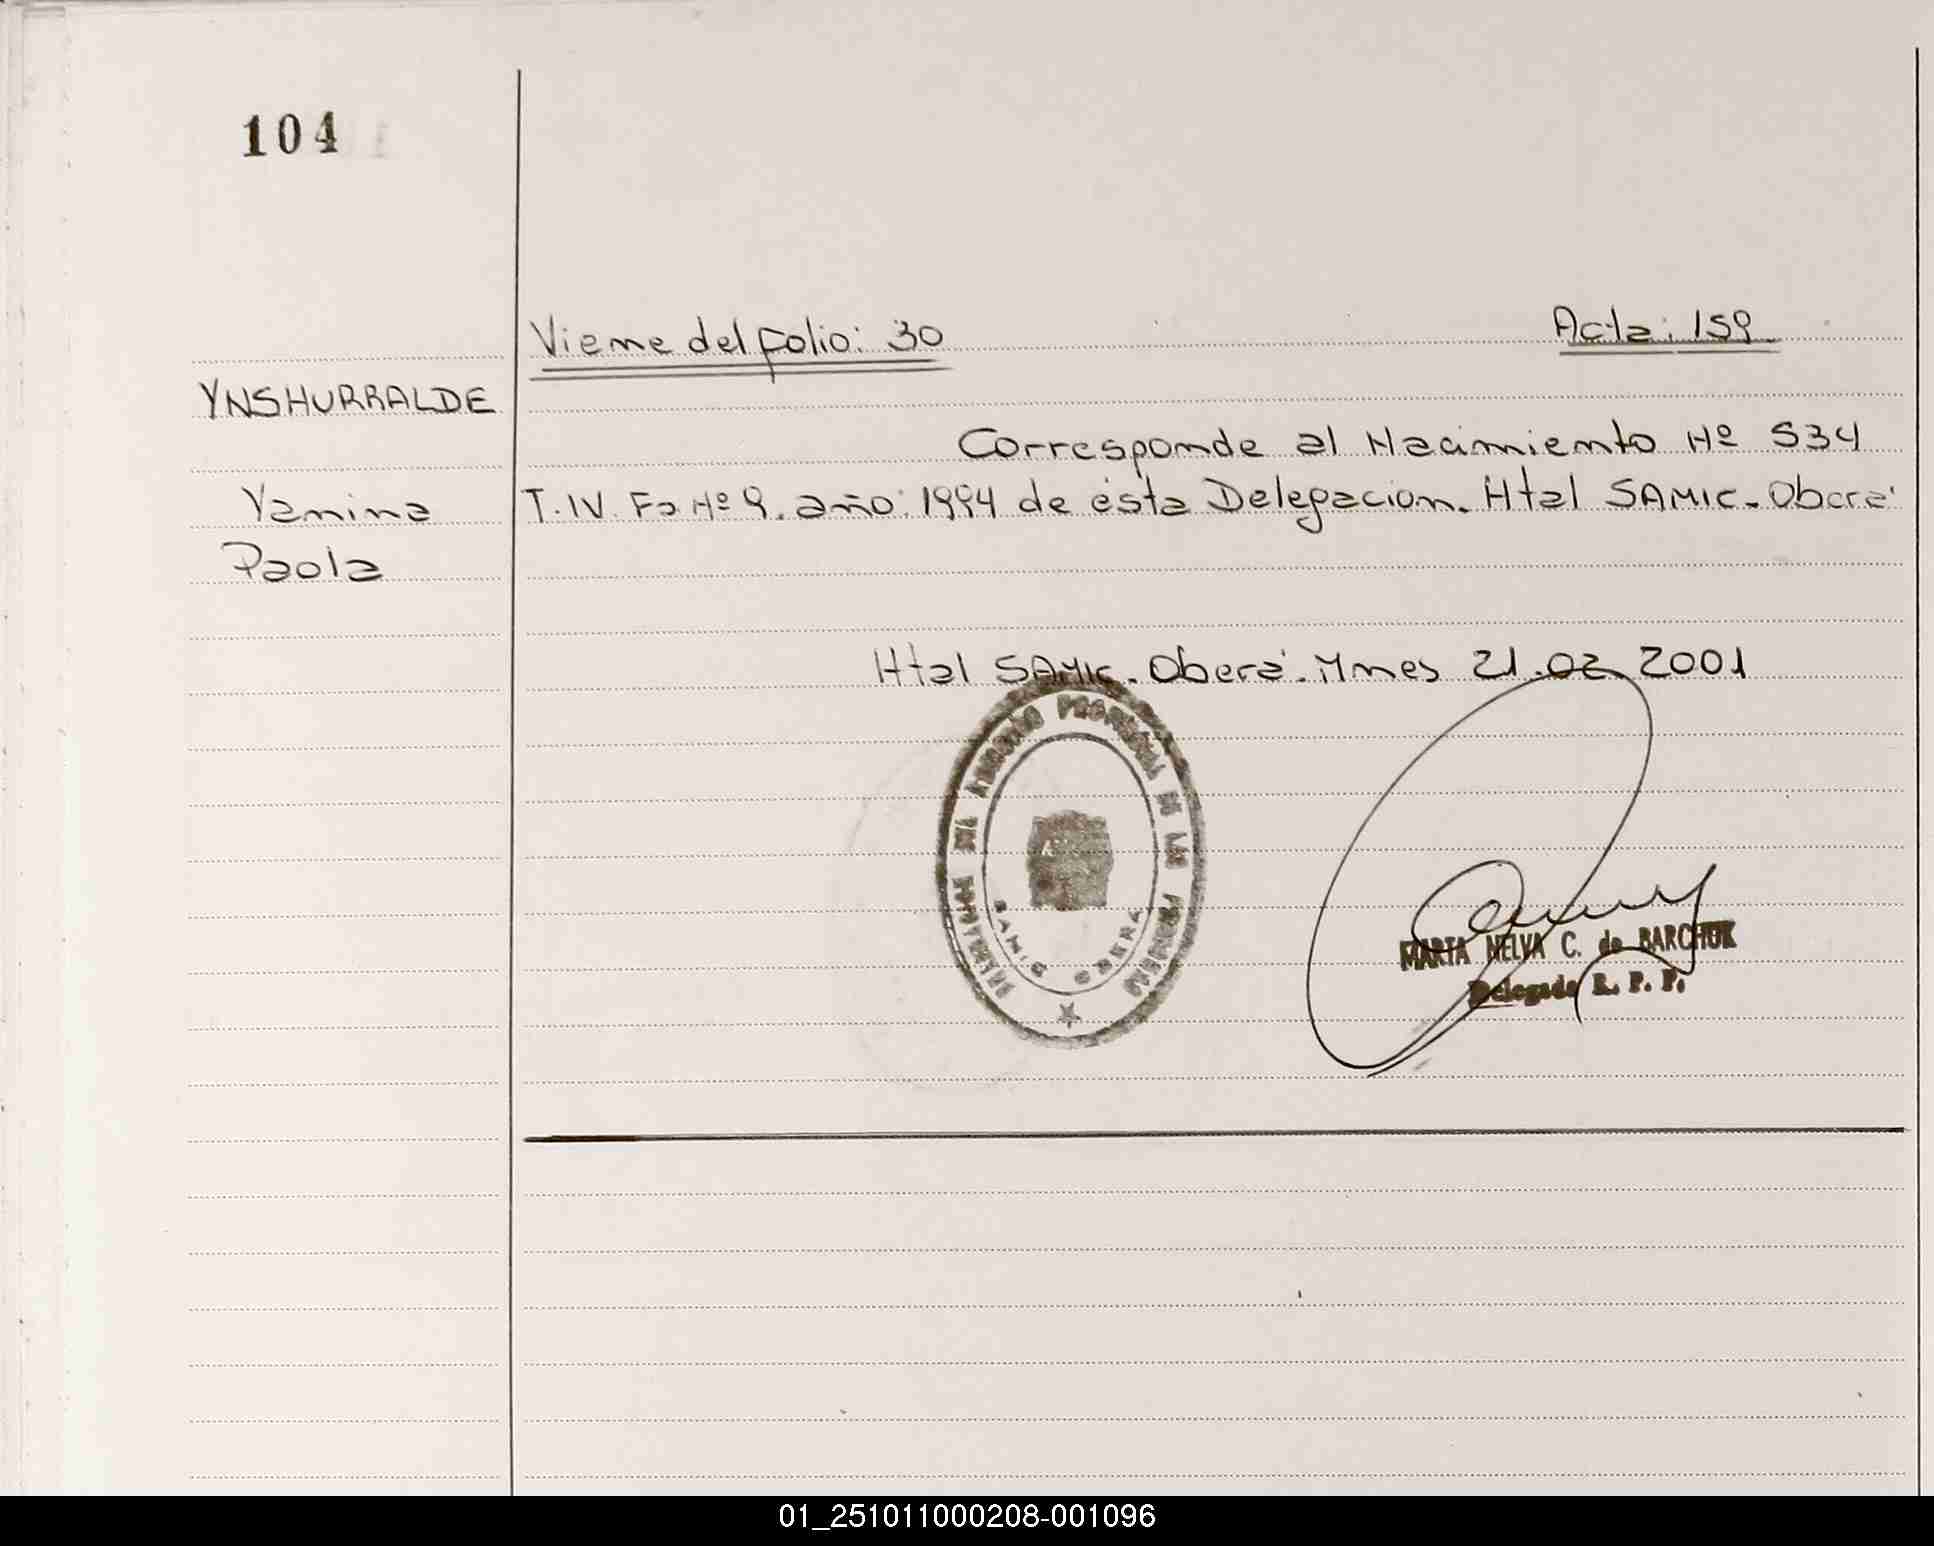 104
Viene del folio: 30
Acta: 159
YNSHURRALDE
Corresponde al Nacimiento Nº 534
Yanina
T. IV. Fo Nº 9. año: 1994 de ésta Delegacion. Htal SAMIC. Oberá
Paola
Htal SAMIC. Oberá. Mnes 21.02 2001
PROVINCIAL DE LAS PERSONAS
SAMIC OBERA
MARTA NELVA C. de BARCHUK
Delegado R. P. P.
01_251011000208-001096